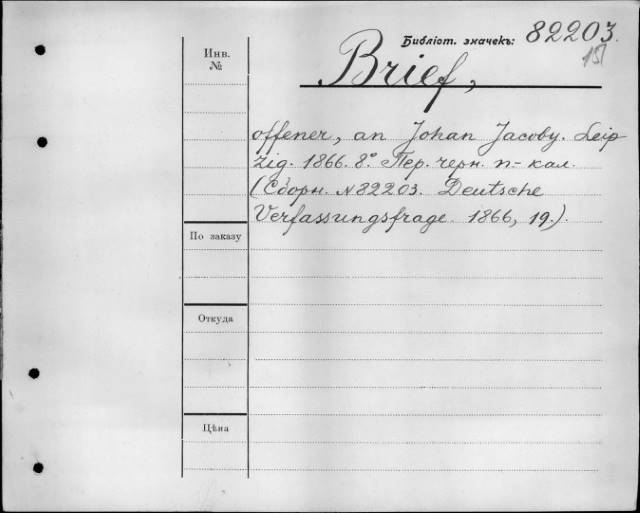 Библіот. значекъ: 82203.
Инв. №
Brief,
offener, an Johan Jacoby. Leip
zig. 1866. 8° Пер. черн. п.-кал.
(Сборн. №82203. Deutsche
Verfassungsfrage 1866, 19.)
По заказу
Откуда
Цѣна